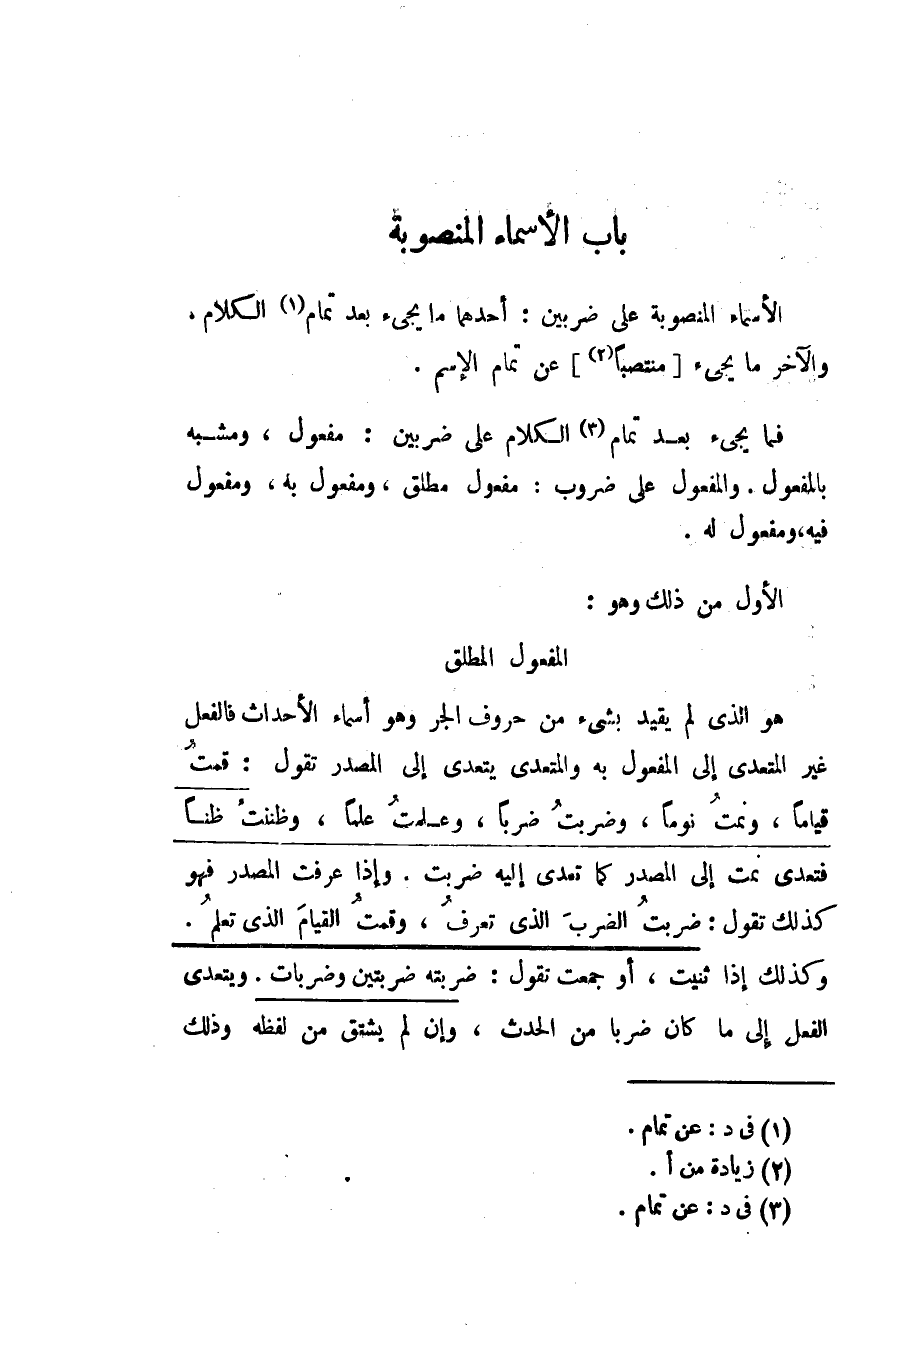 باب الأسماء المنصوبة
الأسماء المنصوبة على ضربين : أحدهما ما يجىء بعد تمام(١) الكلام ،
والآخر ما يجىء [ منتصباً(٢) ] عن تمام الإسم .
فما يجىء بعد تمام(٣) الكلام على ضربين : مفعول ، ومشبه
بالمفعول . والمفعول على ضروب : مفعول مطلق ، ومفعول به ، ومفعول
فيه،ومفعول له .
الأول من ذلك وهو :
المفعول المطلق
هو الذى لم يقيد بشىء من حروف الجر وهو أسماء الأحداث فالفعل
غير المتعدى إلى المفعول به والمتعدى يتعدى إلى المصدر تقول : قمتُ
قياماً ، ونمتُ نوماً ، وضربتُ ضرباً ، وعلمتُ علماً ، وظننتُ ظنـاً
فتعدى نمت إلى المصدر كما تعدى إليه ضربت . وإذا عرفت المصدر فهو
كذلك تقول : ضربتُ الضربَ الذى تعرفُ ، وقمتُ القيامَ الذى تعلمُ .
وكذلك إذا ثنيت ، أو جمعت تقول : ضربته ضربتين وضربات . ويتعدى
الفعل إلى ما كان ضربا من الحدث ، وإن لم يشتق من لفظه وذلك
(١) فى د : عن تمام .
(٢) زيادة من أ .
(٣) فى د : عن تمام .